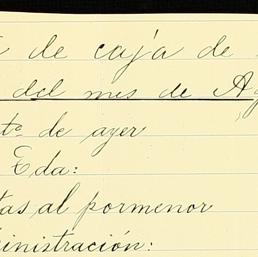 de caja de
del mes de Ag
to de ayer
Eda:
tas al pormenor
inistración: